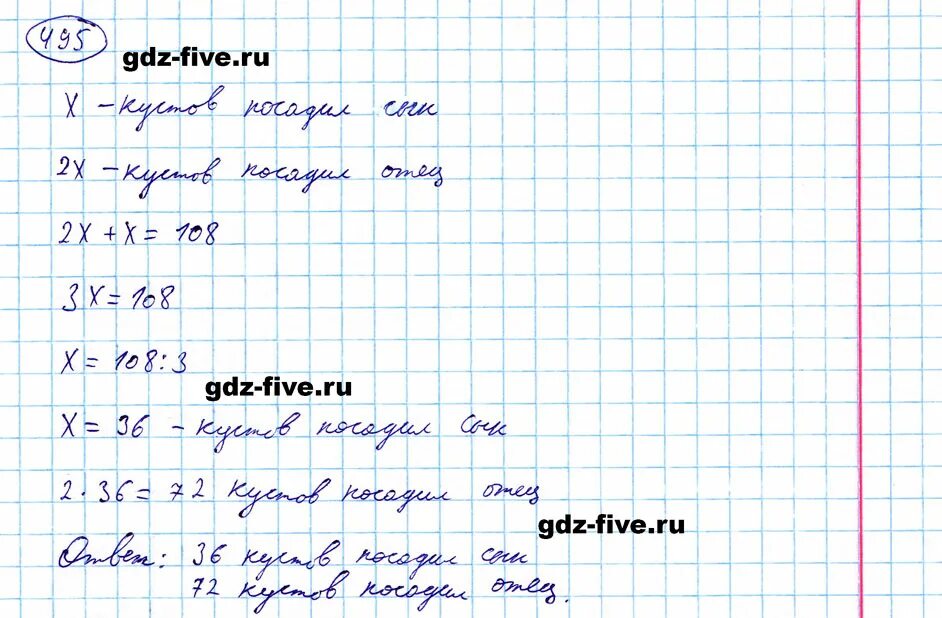 495
gdz-five.ru
x – кустов посадил сын
2x – кустов посадил отец
2x + x = 108
3x = 108
x = 108:3
gdz-five.ru
x = 36 – кустов посадил сын
2 · 36 = 72 кустов посадил отец
gdz-five.ru
Ответ: 36 кустов посадил сын
72 кустов посадил отец.